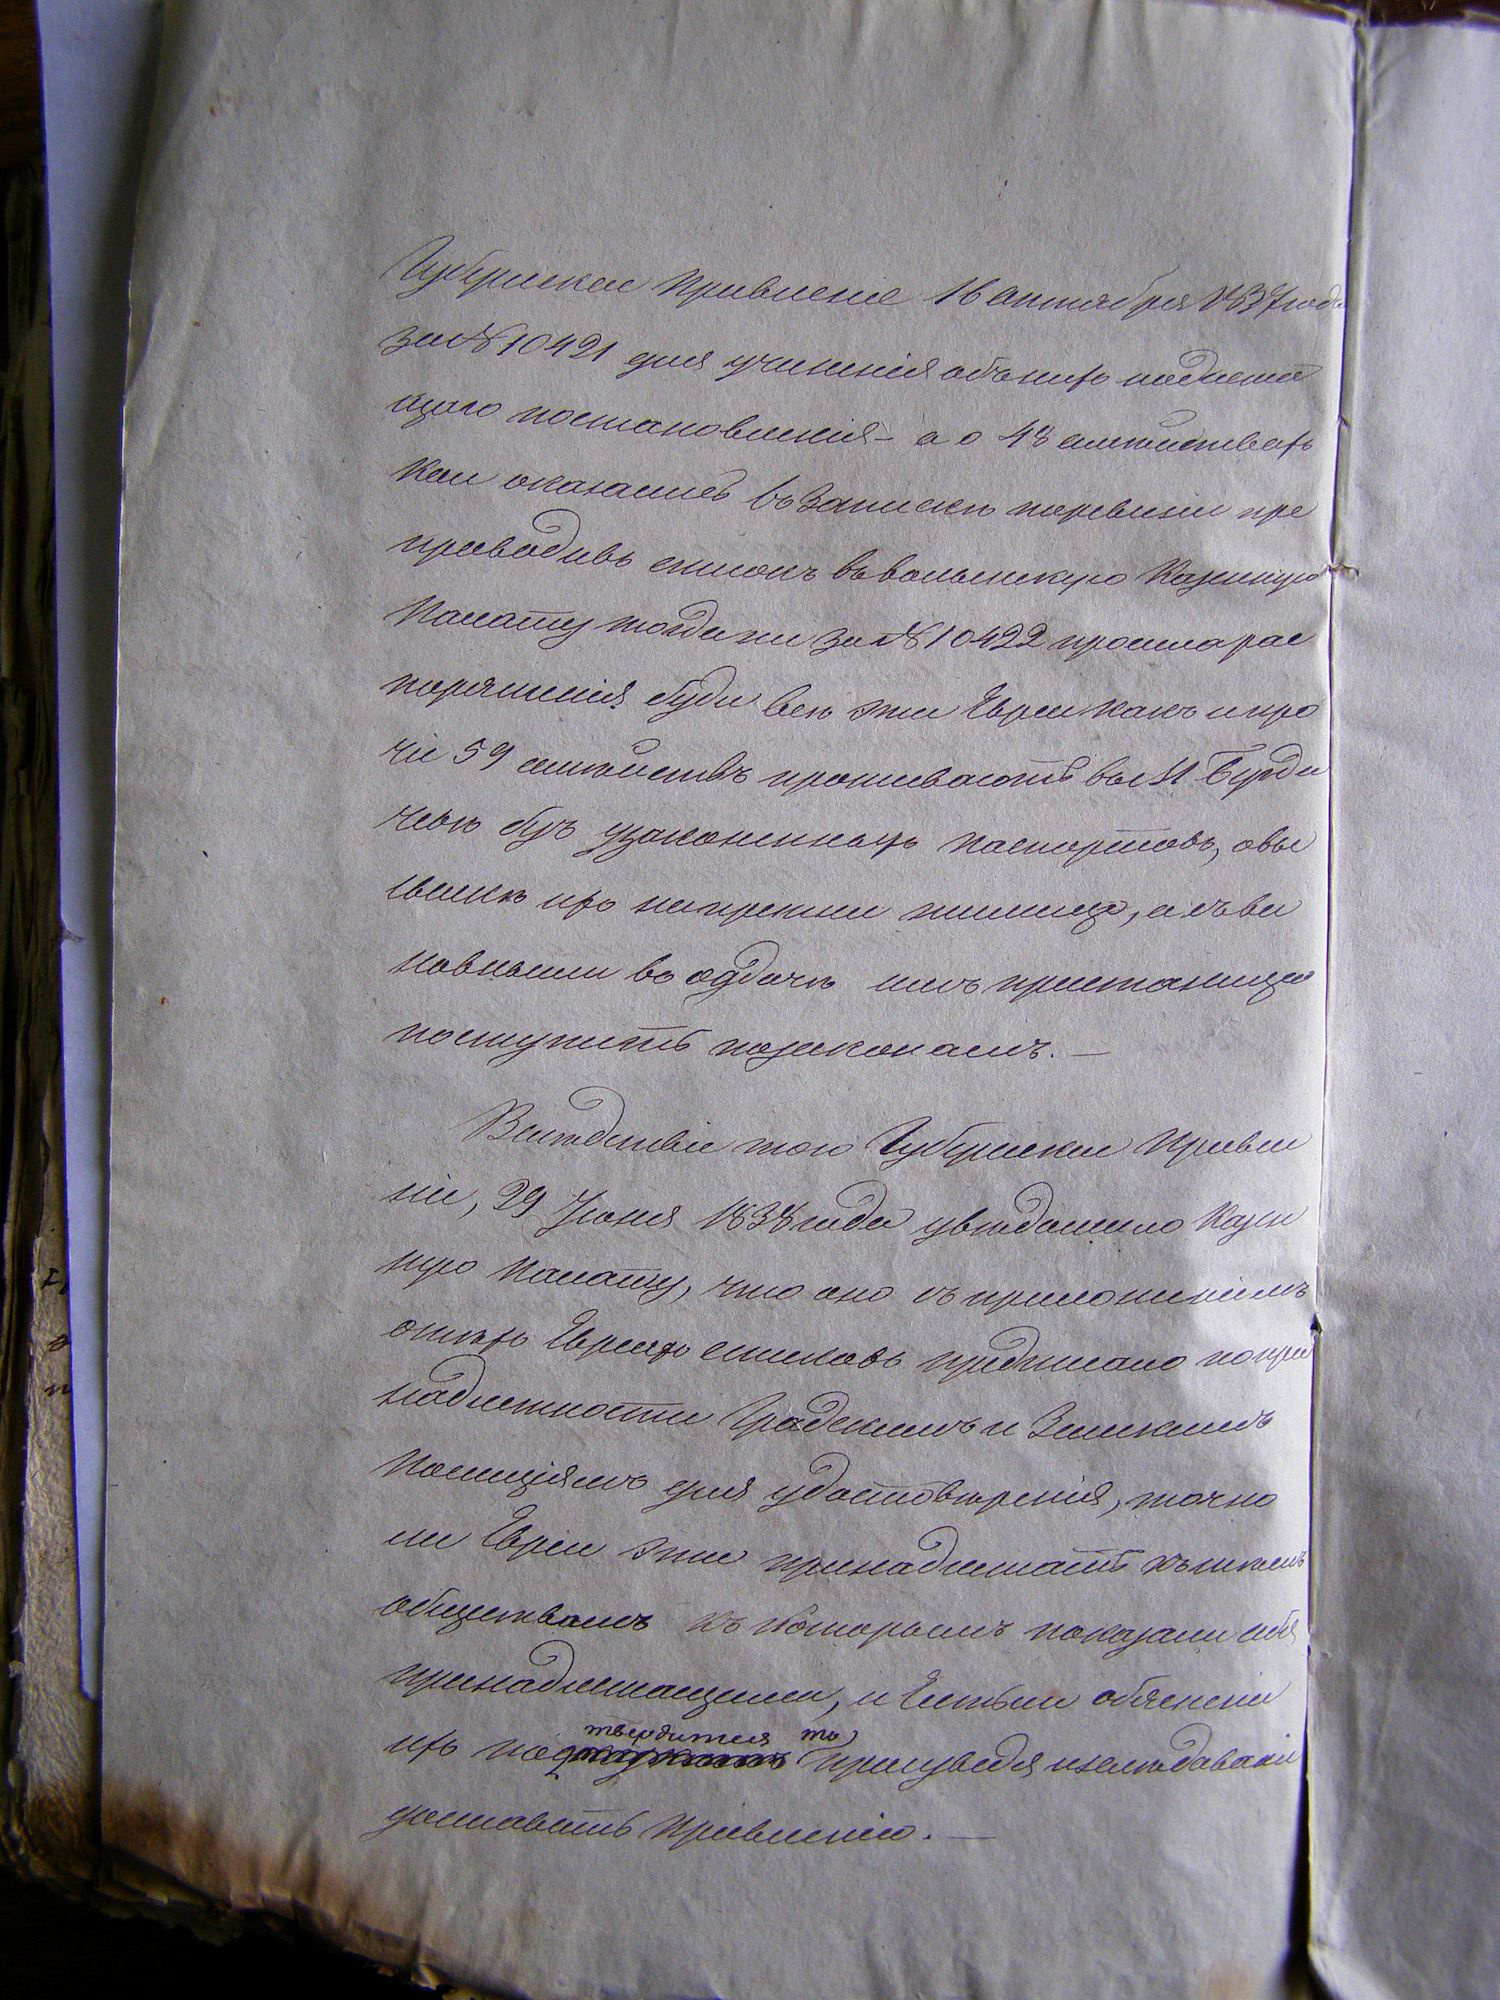 Губернское Правленіе 16 октября 1837 года
за № 10421 для учиненія объ нихъ надлежа
щаго постановленія – а о 48 семействахъ
кои оказались въ Записке по ревизіи пре
проводивъ списокъ въ Волынскую Казенную
Палату тогда же за № 10422 просила рас
поряженія буде все эти Евреи какъ и про
чіе 59 семействъ проживаютъ въ М. Берди
чевѣ безъ узаконенныхъ паспортовъ, о вы
сылкѣ ихъ на прежнее жилище, а съ ви
новными въ одачѣ имъ пристанища
поступить по законамъ. —
Вслѣдствіе того Губернское Правле
ніе, 29 Іюня 1838 года увѣдомило Казен
ную Палату, что оно съ приложеніемъ
о сихъ Евреяхъ списковъ предписало по при
надлежности Градскимъ и Земскимъ
Полиціямъ для удостовѣренія, точно
ли Евреи эти принадлежатъ къ тѣмъ
обществамъ къ которымъ показали себя
принадлежащими, и Естьли обясненіе
твердится то
ихъ под произведя изслѣдованіе
доставить Правленію. —